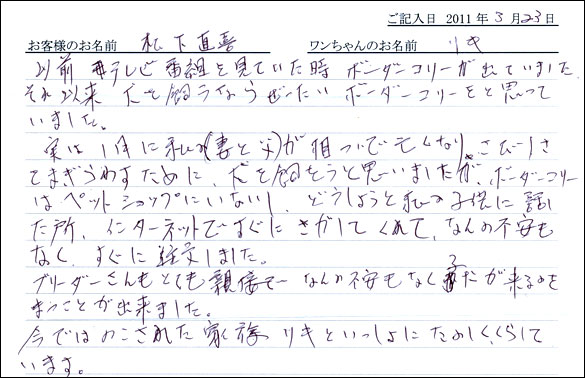 ご記入日 2011年3月23日
お客様のお名前 松下直喜 ワンちゃんのお名前 リキ
以前テレビ番組を見ていた時 ボーダーコリーが出ていました
それ以来 犬を飼うならぜったい ボーダーコリーをと思って
いました。
実は1月に私の(妻と父)が相ついで亡くなり、さびしさ
をまぎらわすために、犬を飼おうと思いましたが、ボーダーコリー
はペットショップにいないし、どうしようと私の子供に話し
た所、インターネットですぐにさがしてくれて、なんの不安も
なく、すぐに注文しました。
ブリーダーさんもとても親切で なんの不安もなく が来るのを
まつことが出来ました。
今ではのこされた家族 リキといっしょにたのしく、くらして
います。